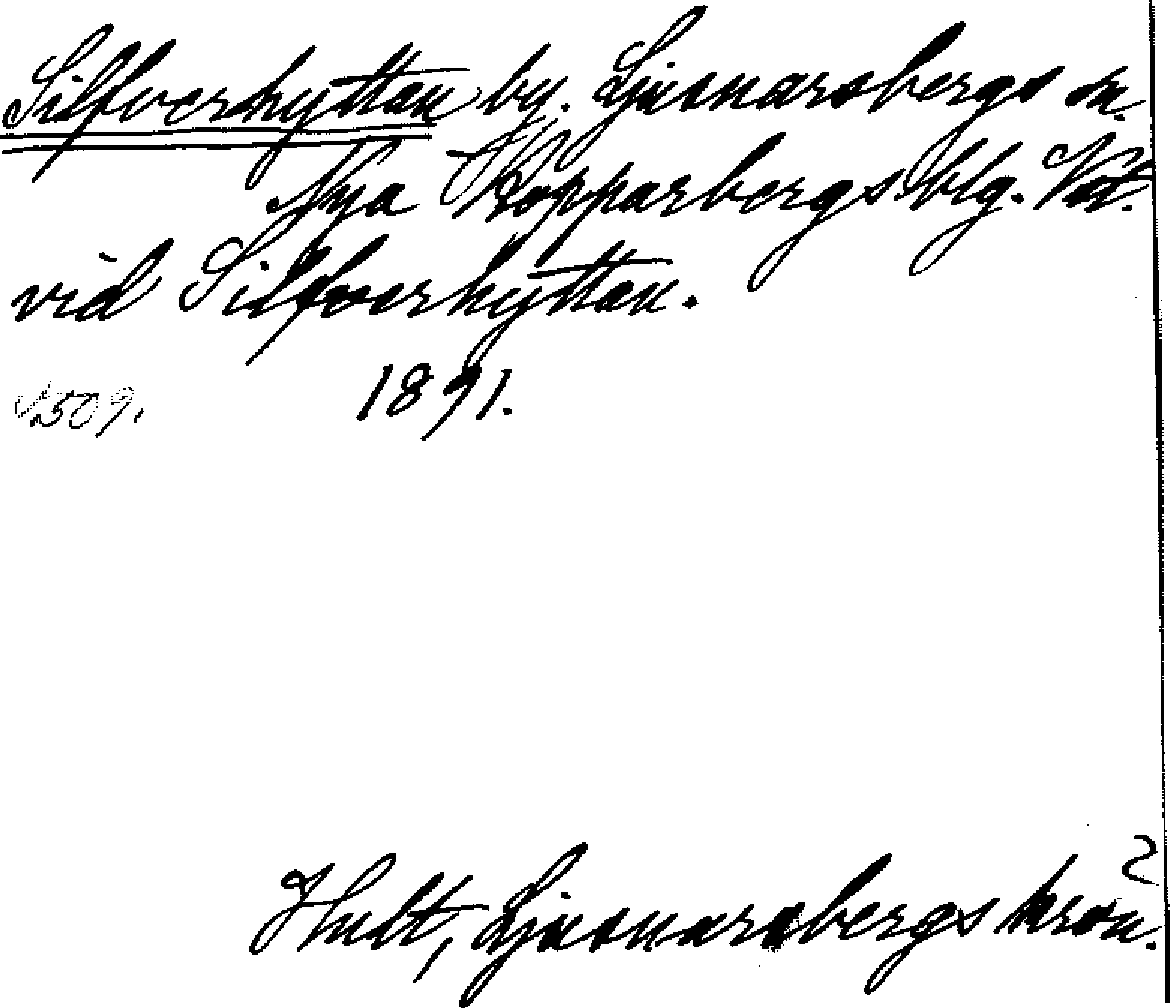 Silfverhyttan by. Ljusnarsbergs sn.
Nya Kopparbergs blg. Vstm.
vid Silfverhyttan.
1891.
Hult, Ljusnarsbergs krön.